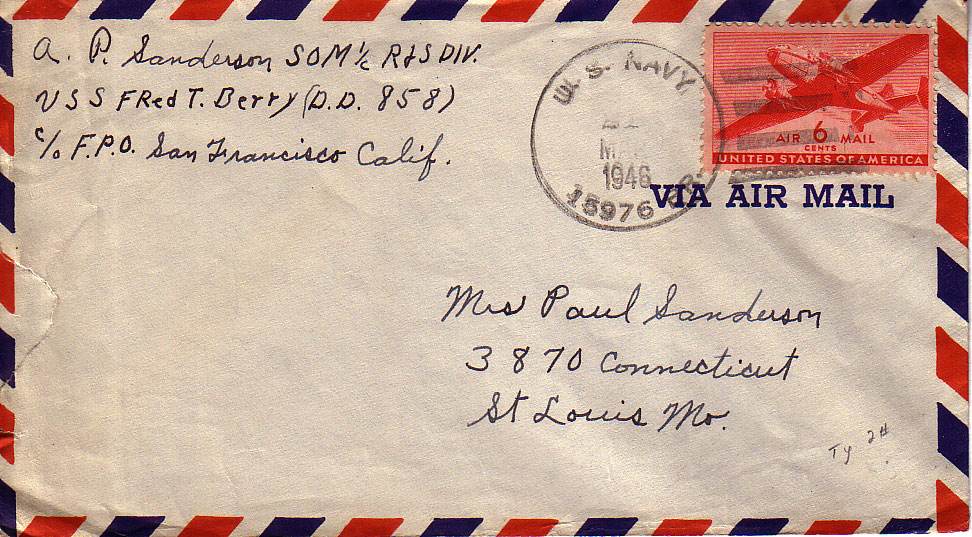 A. P. Sanderson SOM 1/c R+S DIV.
USS FRed T. Berry (D.D. 858)
c/o F.P.O. San Francisco Calif.
U. S. NAVY
1946
15976
AIR 6 MAIL
CENTS
UNITED STATES OF AMERICA
VIA AIR MAIL
Mrs Paul Sanderson
3870 Connecticut
St Louis Mo.